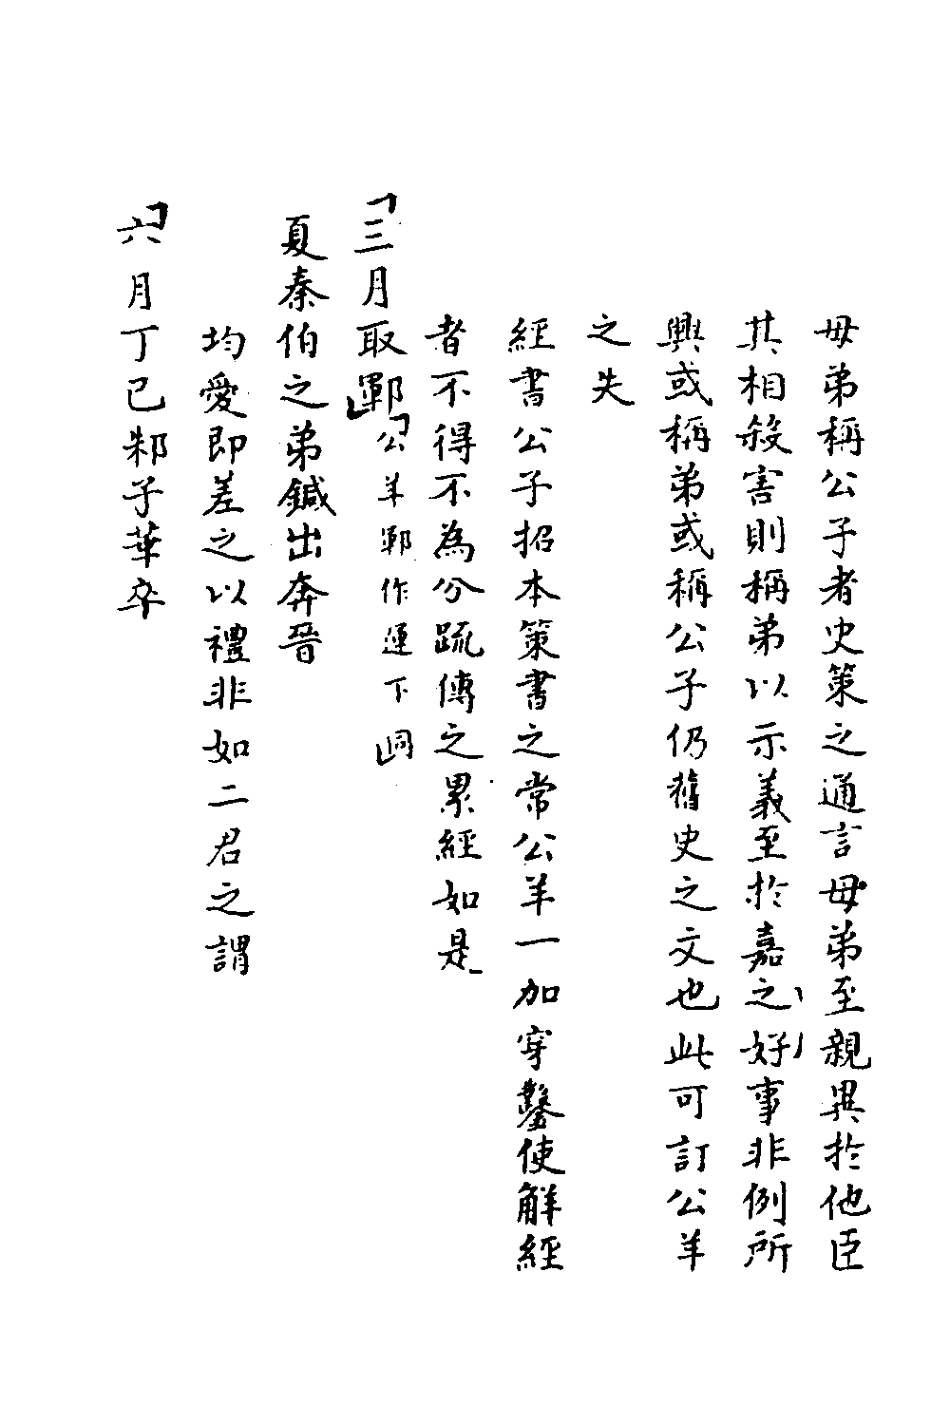 母弟稱公子者史策之通言母弟至親異於他臣
其相殺害則稱弟以示義至於嘉好之事非例所
興或稱弟或稱公子仍舊史之文也此可訂公羊
之失
經書公子招本策書之常公羊一加穿鑿使解經
者不得不為分疏傳之累經如是
「三月取鄆」「公羊鄆作運下同」
夏秦伯之弟鍼出奔晉
均愛即差之以禮非如二君之謂
「六月丁巳邾子華卒